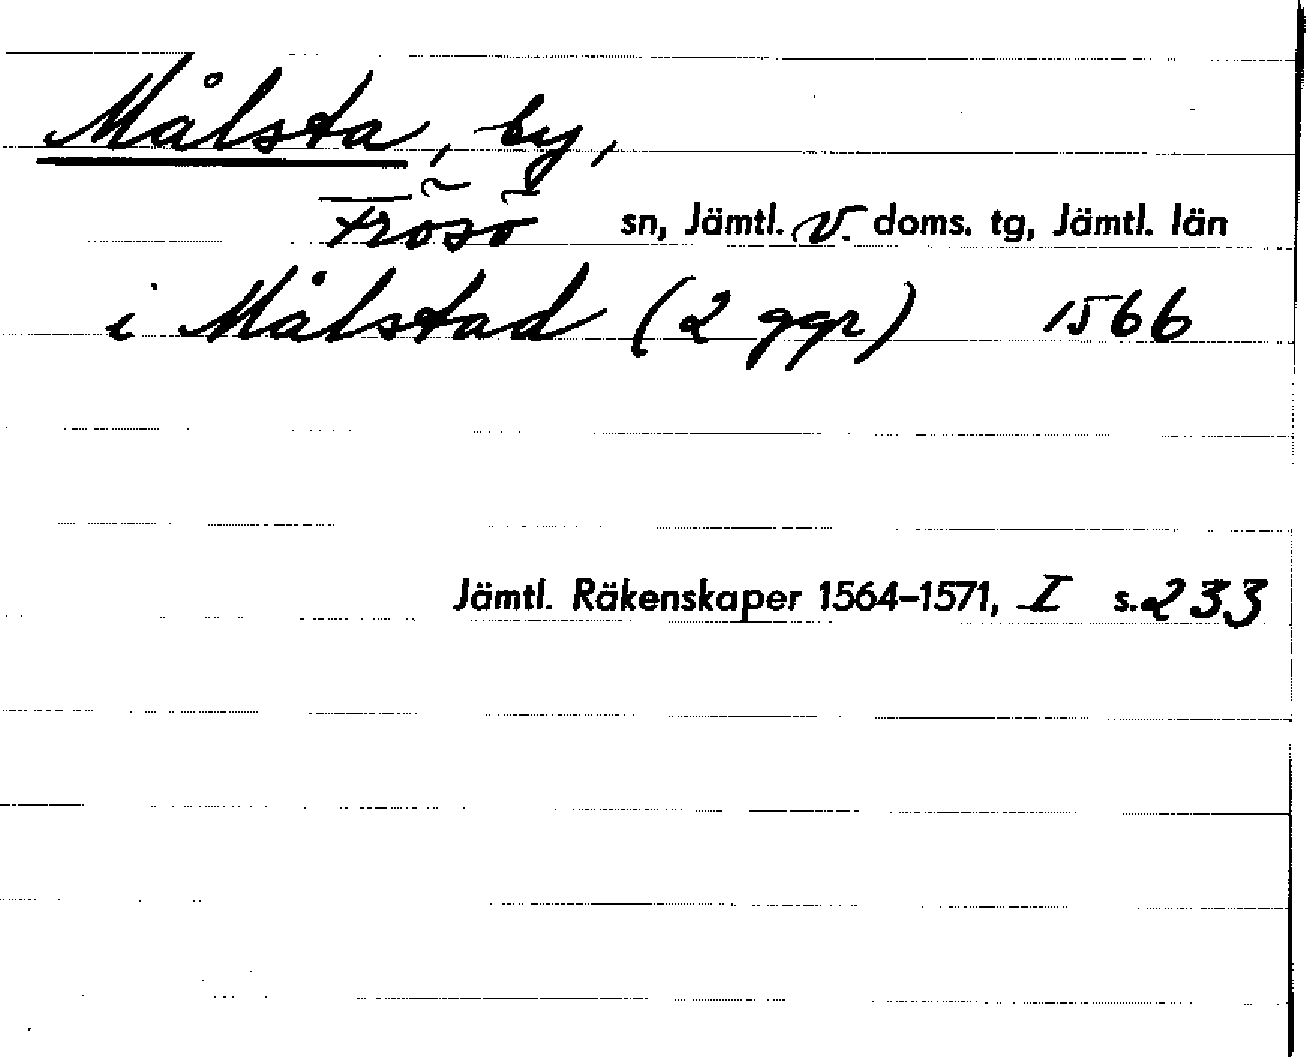 Målsta, by,
Frösö sn, Jämtl. v. doms. tg, Jämtl. län
i Målstad (2 ggr) 1566
Jämtl. Räkenskaper 1564–1571, I s. 233